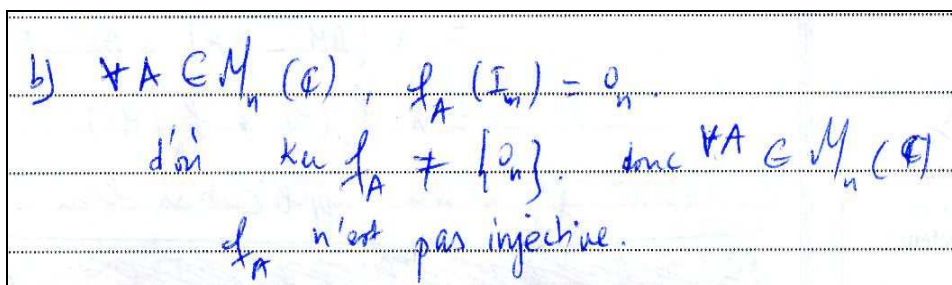 b) ∀A ∈ M_n (ℂ), f_A (I_n) = 0_n.
d'où Ker f_A ≠ {0_n}. donc ∀A ∈ M_n (ℂ)
f_A n'est pas injective.